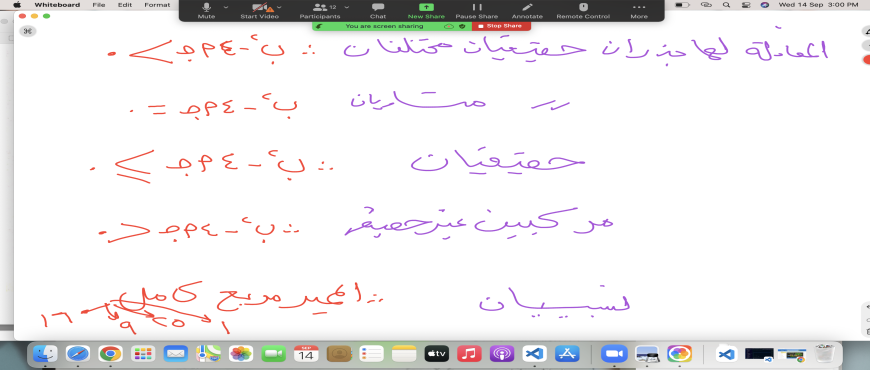 Whiteboard File Edit Format Wed 14 Sep 3:00 PM
Mute Start Video Participants 12 Chat New Share Pause Share Annotate Remote Control More
You are screen sharing Stop Share
المعادلة لها جذران حقيقيان مختلفان ∴ ب٢ - ٤ م جـ > ٠
〃 متساويان ب٢ - ٤ م جـ = ٠
حقيقيان ∴ ب٢ - ٤ م جـ ≥ ٠
مركبين غير حقيقى ∴ ب٢ - ٤ م جـ < ٠
نسبيان ∴ المميز مربع كامل
١ ٢٥ ٩ ١٦
SEP 14
tv